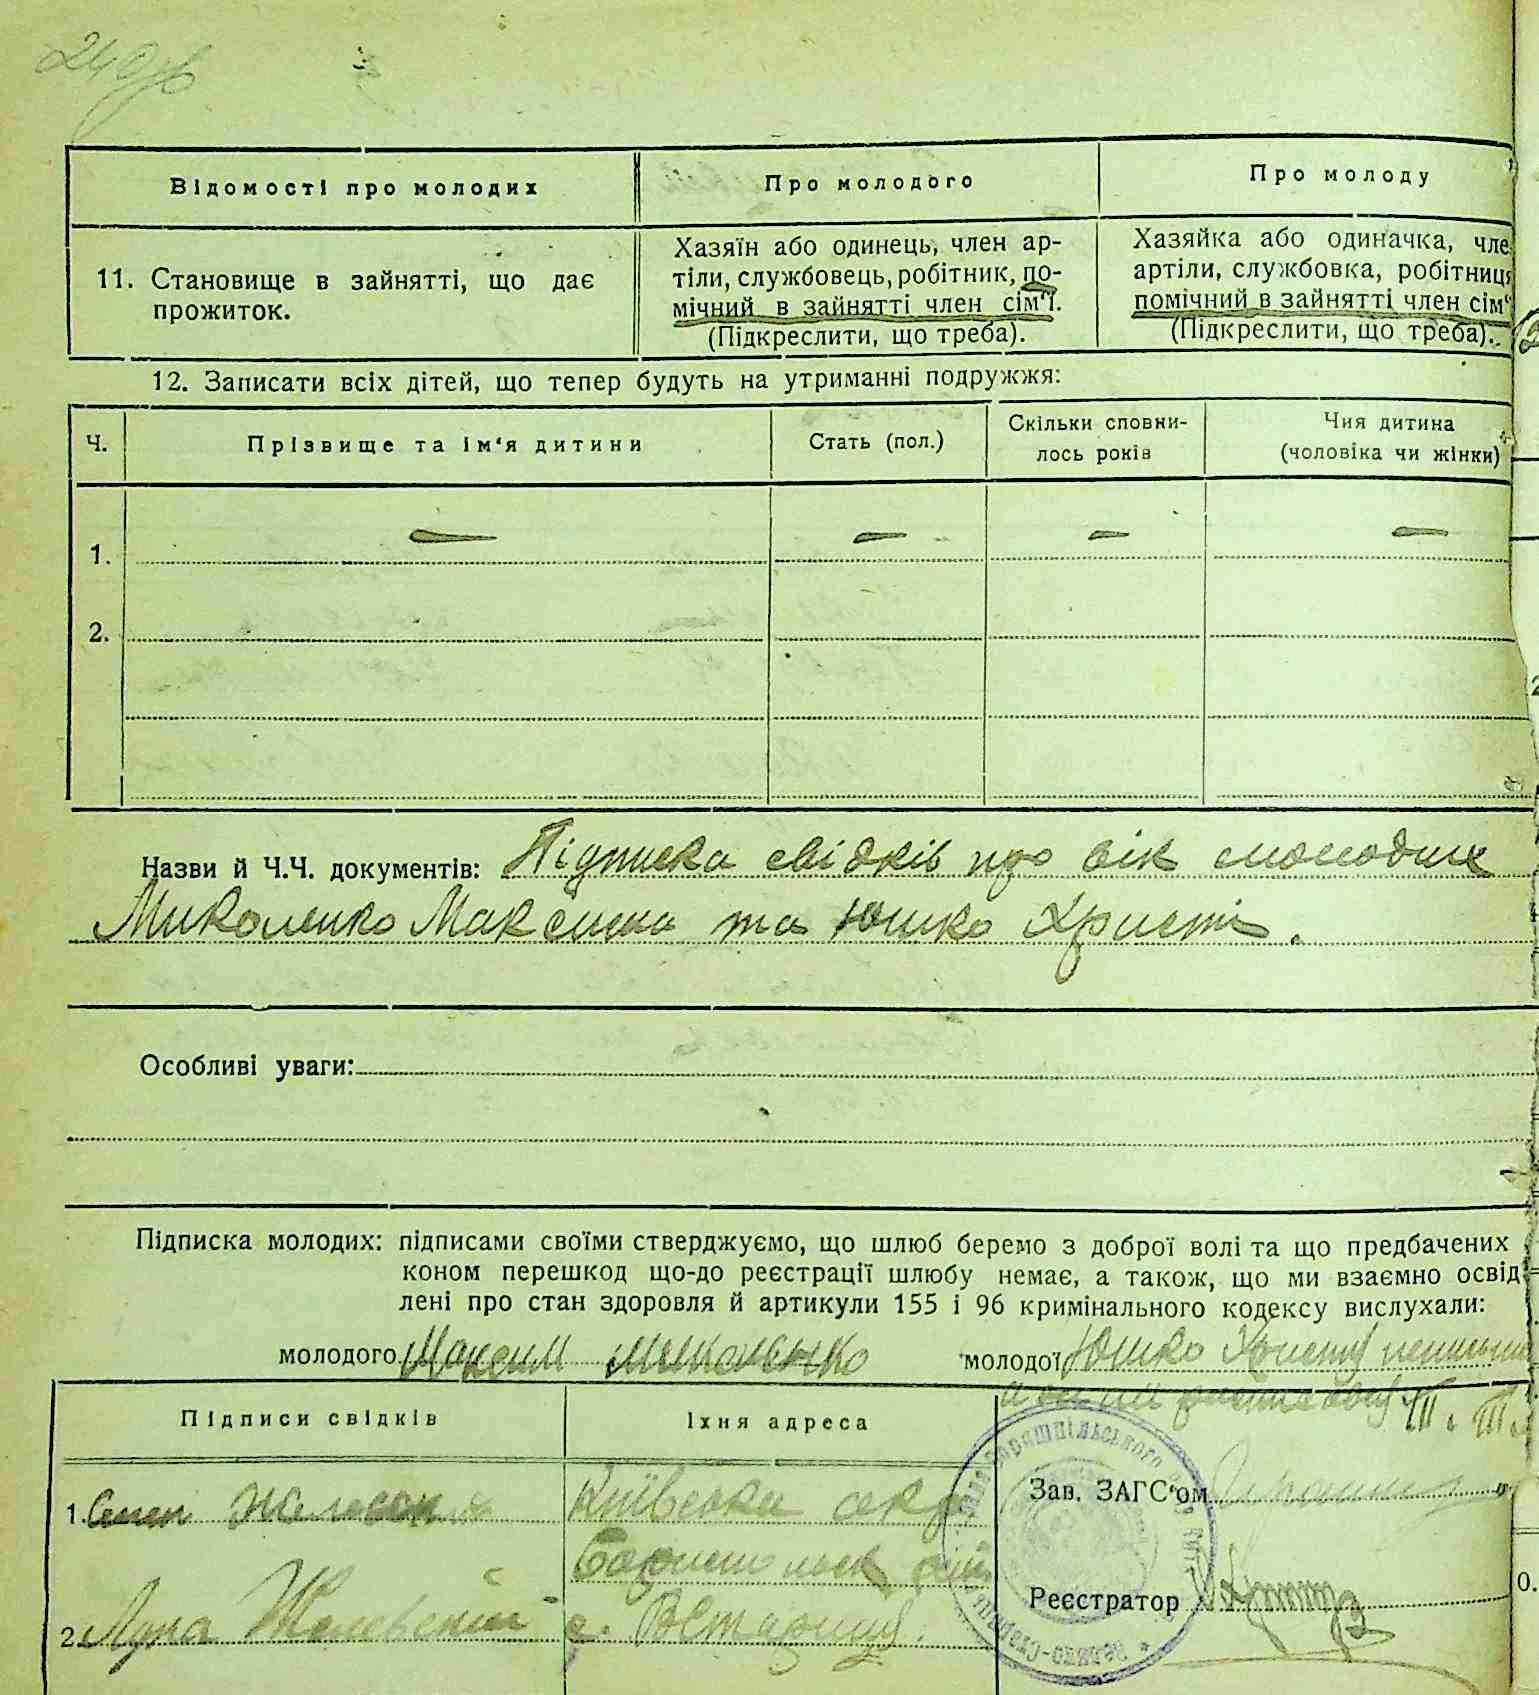 Відомості про молодих
Про молодого
Про молоду
11. Становище в зайнятті, що дає
прожиток.
Хазяїн або одинець, член ар-
тіли, службовець, робітник, по-
мічний в зайнятті член сім'ї.
(Підкреслити, що треба).
Хазяйка або одиначка, чле
артіли, службовка, робітниця
помічний в зайнятті член сім'
(Підкреслити, що треба).
12. Записати всіх дітей, що тепер будуть на утриманні подружжя:
Ч.
Прізвище та ім'я дитини
Стать (пол.)
Скільки сповни-
лось років
Чия дитина
(чоловіка чи жінки)
1. — — — —
2.
Назви й Ч.Ч. документів: Підписка свідків про вік молодих
Миколенко Максима та Юшко Христі.
Особливі уваги:
Підписка молодих: підписами своїми стверджуємо, що шлюб беремо з доброї волі та що предбачених
коном перешкод що-до реєстрації шлюбу немає, а також, що ми взаємно освід
лені про стан здоровля й артикули 155 і 96 кримінального кодексу вислухали:
молодого Максим Миколенко
молодої Юшко Христя
Підписи свідків
Їхня адреса
1.
Київська окр
Бориспольск рай
2. Лука
с.
Зав. ЗАГС'ом
Реєстратор